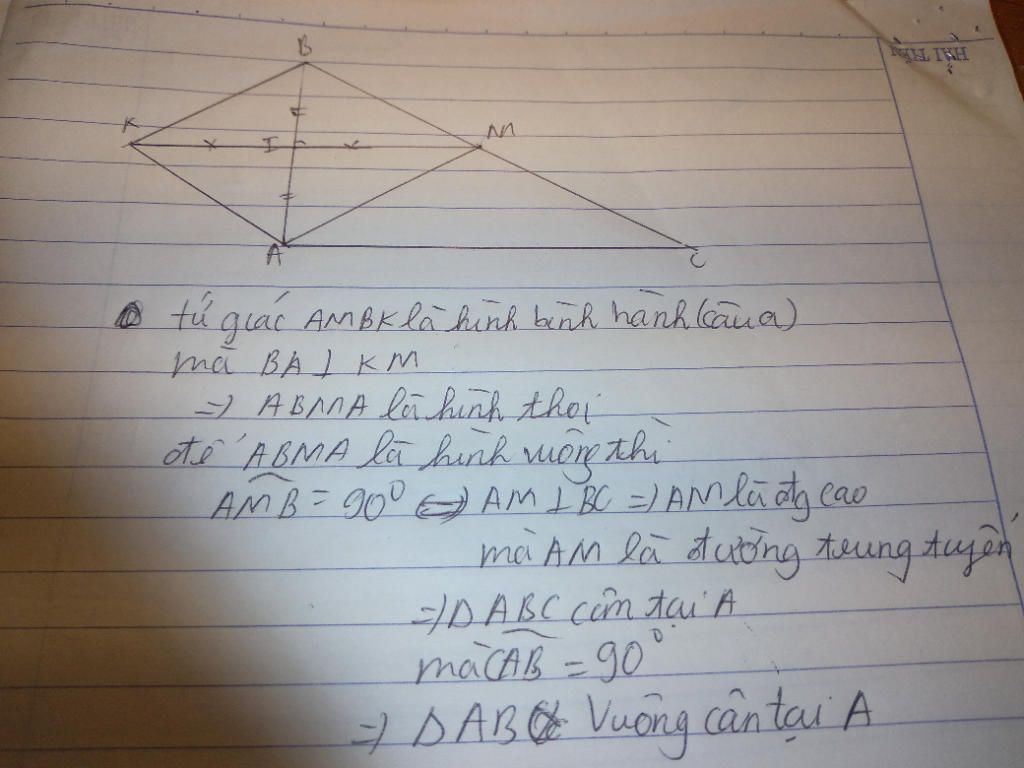 HẢI TIẾN
B
K
I
M
A
C
tứ giác AMBK là hình bình hành (câu a)
mà BA ⊥ KM
=> ABMA là hình thoi
để ABMA là hình vuông thì
AMB = 90⁰ <=> AM ⊥ BC => AM là đg cao
mà AM là đường trung tuyến
=> D ABC cân tại A
mà CAB = 90⁰
=> D ABC Vuông cân tại A